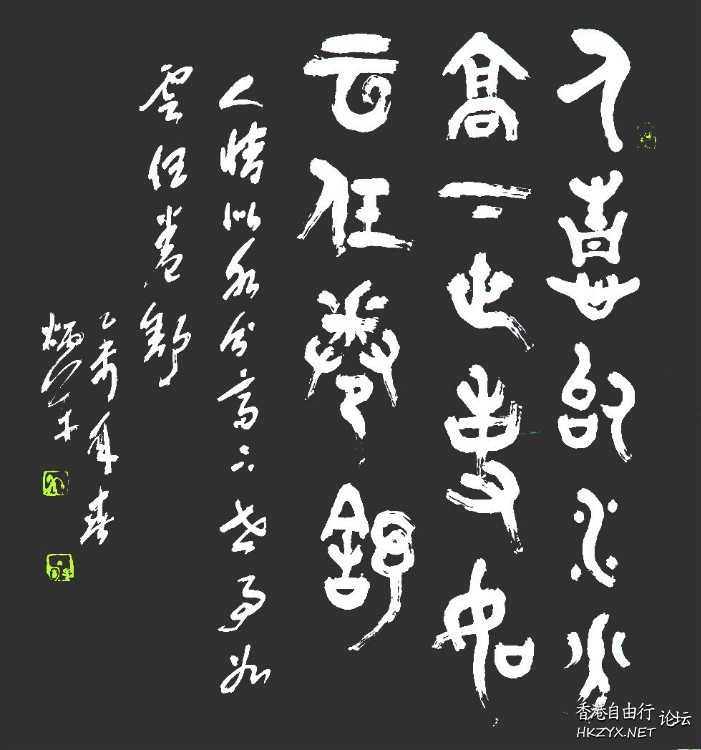 人情似水分
高下世事如
云任卷舒
人情似水分高下世事如
雲任卷舒
乙未年春
炳
香港自由行 论坛
HKZYX.NET